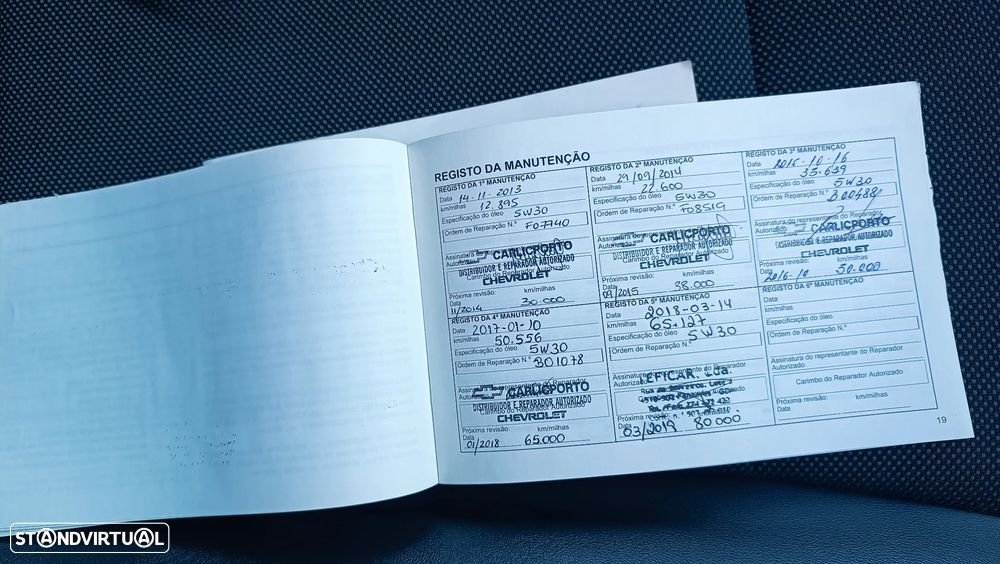 REGISTO DA MANUTENÇÃO
REGISTO DA 1ª MANUTENÇÃO
Data 14.11.2013
km/milhas 12.895
Especificação do óleo 5W30
Ordem de Reparação N.º F07740
Assinatura do
Autorizado
CARLICPORTO
DISTRIBUIDOR E REPARADOR AUTORIZADO
Carimbo do Reparador Autorizado
CHEVROLET
Próxima revisão: km/milhas
Data
11/2014 30.000
REGISTO DA 2ª MANUTENÇÃO
Data 29/09/2014
km/milhas 22.600
Especificação do óleo 5W30
Ordem de Reparação N.º F08519
Assinatura do
Autorizado
CARLICPORTO
DISTRIBUIDOR E REPARADOR AUTORIZADO
Carimbo do Reparador Autorizado
CHEVROLET
Próxima revisão: km/milhas
Data
09/2015 38.000
REGISTO DA 3ª MANUTENÇÃO
Data 2015-10-16
km/milhas 35.639
Especificação do óleo 5W30
Ordem de Reparação N.º
Assinatura do representante do Reparador
Autorizado
CARLICPORTO
DISTRIBUIDOR E REPARADOR AUTORIZADO
CHEVROLET
Próxima revisão: km/milhas
Data
2016-10 50.000
REGISTO DA 4ª MANUTENÇÃO
Data 2017-01-10
km/milhas 50.556
Especificação do óleo 5W30
Ordem de Reparação N.º 301078
CARLICPORTO
DISTRIBUIDOR E REPARADOR AUTORIZADO
Carimbo do Reparador Autorizado
CHEVROLET
Próxima revisão: km/milhas
Data
01/2018 65.000
REGISTO DA 5ª MANUTENÇÃO
Data 2018-03-14
km/milhas 65.127
Especificação do óleo 5W30
Ordem de Reparação N.º
Assinatura do representante do Reparador
Autorizado
LEFICAR, Lda.
Próxima revisão
Data
03/2019 80000
REGISTO DA 6ª MANUTENÇÃO
Data
km/milhas
Especificação do óleo
Ordem de Reparação N.º
Assinatura do representante do Reparador
Autorizado
Carimbo do Reparador Autorizado
Próxima revisão: km/milhas
Data
19
STANDVIRTUAL